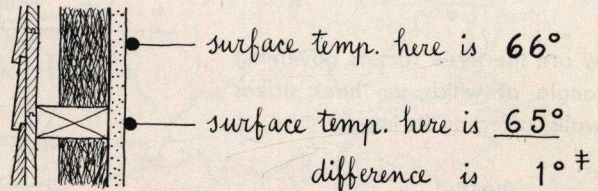 surface temp. here is 66°
surface temp. here is 65°
difference is 1° ‡